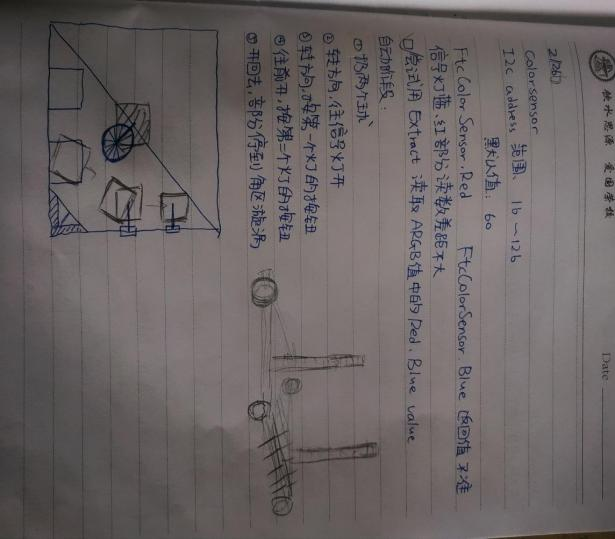 饮水思源 爱国荣校
Date
2/26
Color sensor
I2c address 范围 16~126
默认值：60
FtcColorSensor.Red FtcColorSensor.Blue 返回值不准
信号灯蓝、红部分读数差距不大
尝试用 Extract 读取 ARGB值中的 Red、Blue value
自动阶段：
① 投两个球
② 转方向，往信号灯开
③ 转方向，按第一个灯的按钮
④ 往前开，按第二个灯的按钮
⑤ 开回去，部分停到角区漩涡